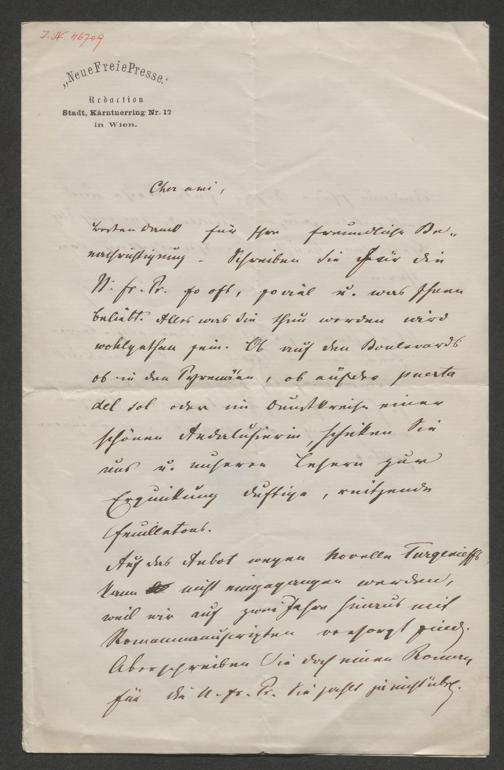 J. N. 46709
„Neue Freie Presse."
Redaction
Stadt, Kärntnerring Nr. 12
in Wien.
Cher ami,
besten Dank für Ihre freundliche Be-
nachrichtigung. Schreiben Sie für die
N. fr. Pr. so oft, so viel u. was Ihnen
beliebt. Alles was Sie thun werden wird
wohlgethan sein. Ob auf den Boulevards
ob in den Pyrenäen, ob auf der puerta
del sol oder im Dunstkreise einer
schönen Andalusierin, schicken Sie
uns u. unseren Lesern zur
Erquickung duftige, reitzende
Feuilletons.
Auf das Anbot wegen Novelle Turgenieffs
kann nicht eingegangen werden,
weil wir auf zwei Jahre hinaus mit
Romanmanuscripten versorgt sind.
Aber schreiben Sie doch einen Roman
für die N. fr. Pr. Sie zahlt ja nicht übel.